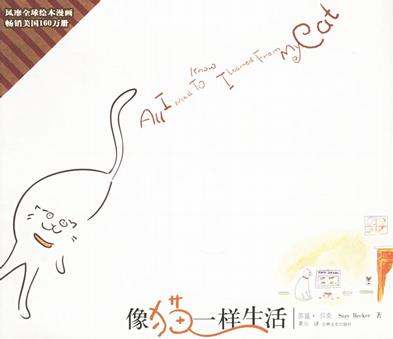 风靡全球绘本漫画
畅销美国160万册
All I Need To Know I Learned From My Cat
像猫一样生活
苏兹·贝克 Suzy Becker 著
译 吉林文史出版社